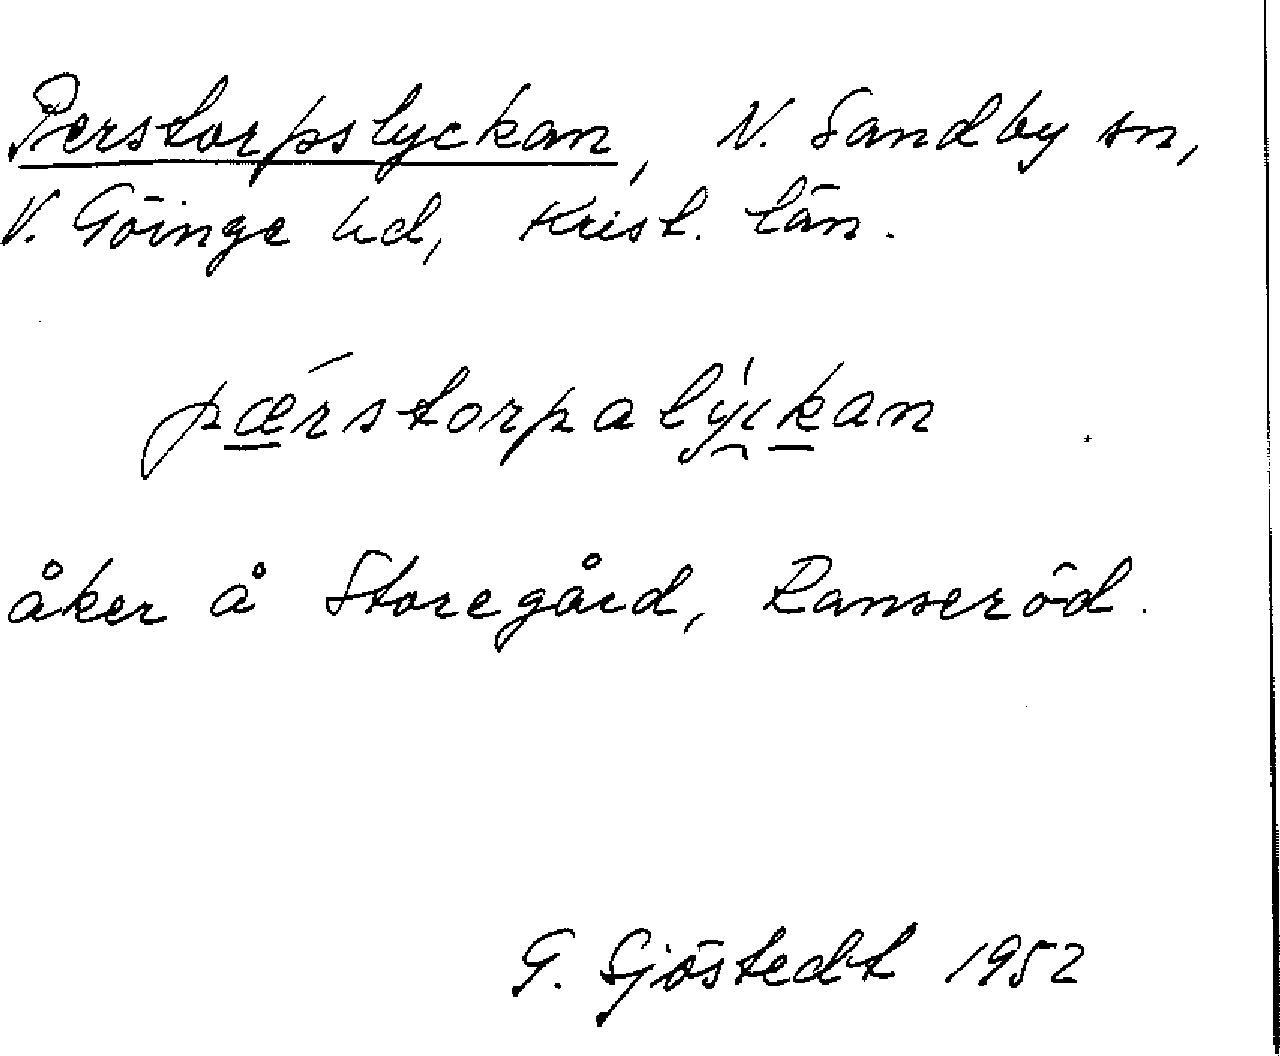 Perstorpslyckan, N. Sandby sn,
V. Göinge hd, Krist. län.
pǽrstorpalýckan
åker å Storegård, Ranseröd.
G. Sjöstedt 1952